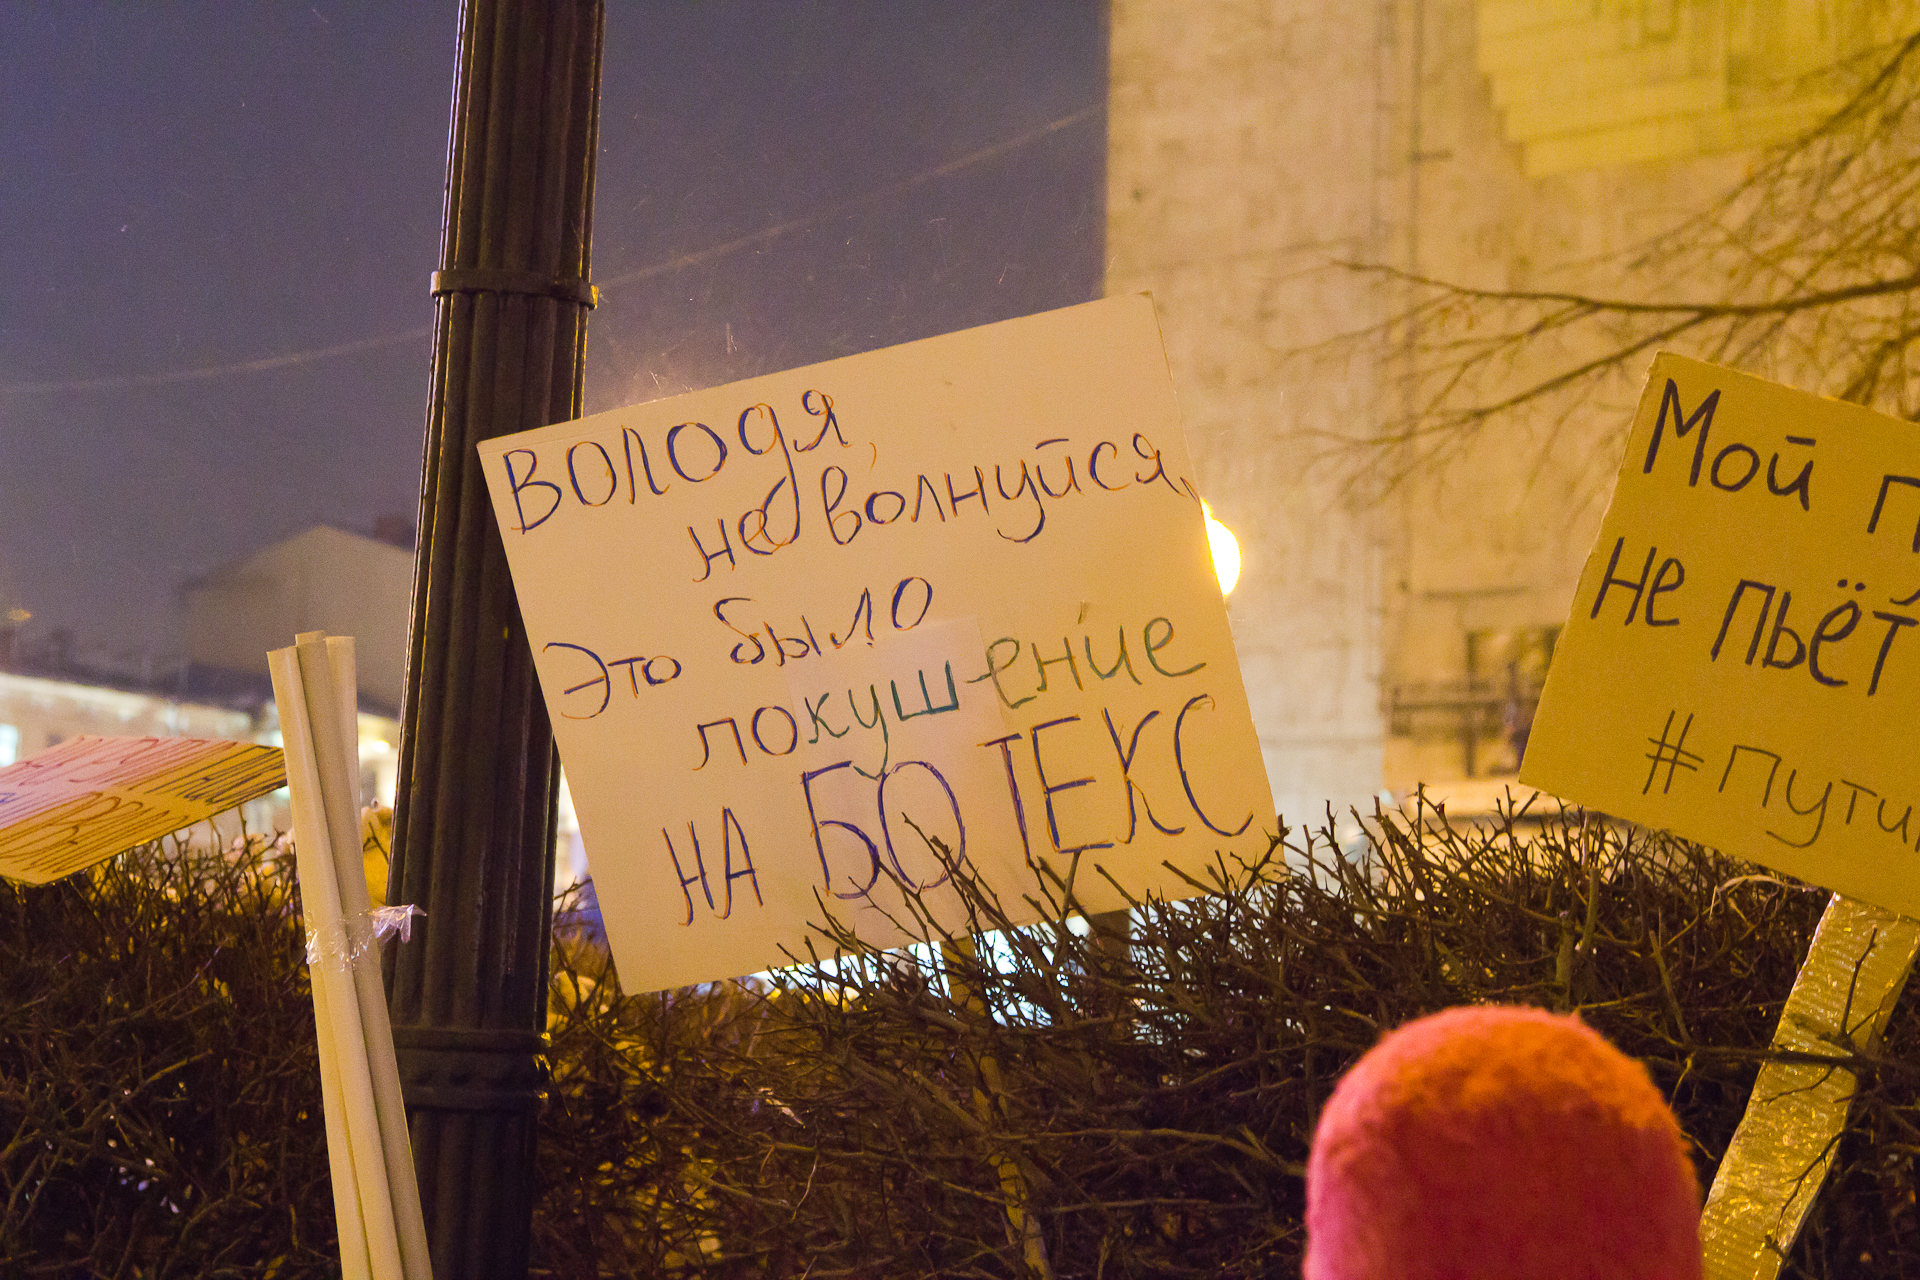 Володя,
не волнуйся,
Это было
покушение
НА БОТЕКС
Мой
не пьёт